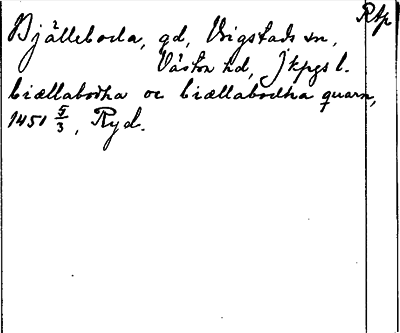 Rtp
Bjälleboda, gd, Vrigstads sn,
Västra hd, Jkpgs l.
biællabodha oc biællabodha quarn,
1451 5/3, Ryd.